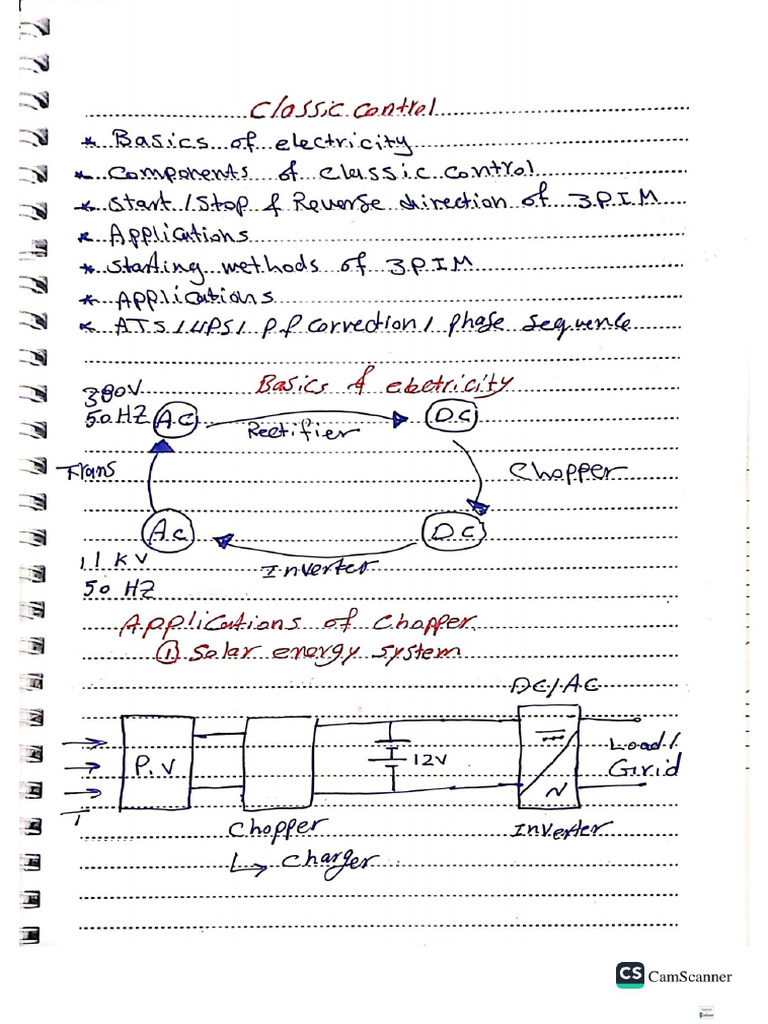 Classic control
* Basics of electricity
* Components of classic control
* Start/Stop & Reverse direction of 3.P.I.M
* Applications
* Starting methods of 3.P.I.M
* Applications
* ATS/UPS/ P.f Correction/ phase sequence
Basics of electricity
380V
50HZ AC Rectifier DC
Trans Chopper
AC Inverter DC
11 KV
50 HZ
Applications of Chopper
① Solar energy system
DC/AC
P.V 12V Load/
Grid
Chopper Inverter
Charger
CS CamScanner